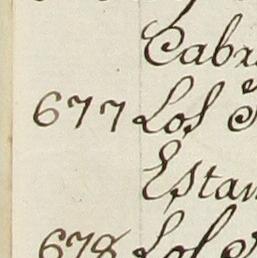 Cabr
677 Los
Estan
678 Los